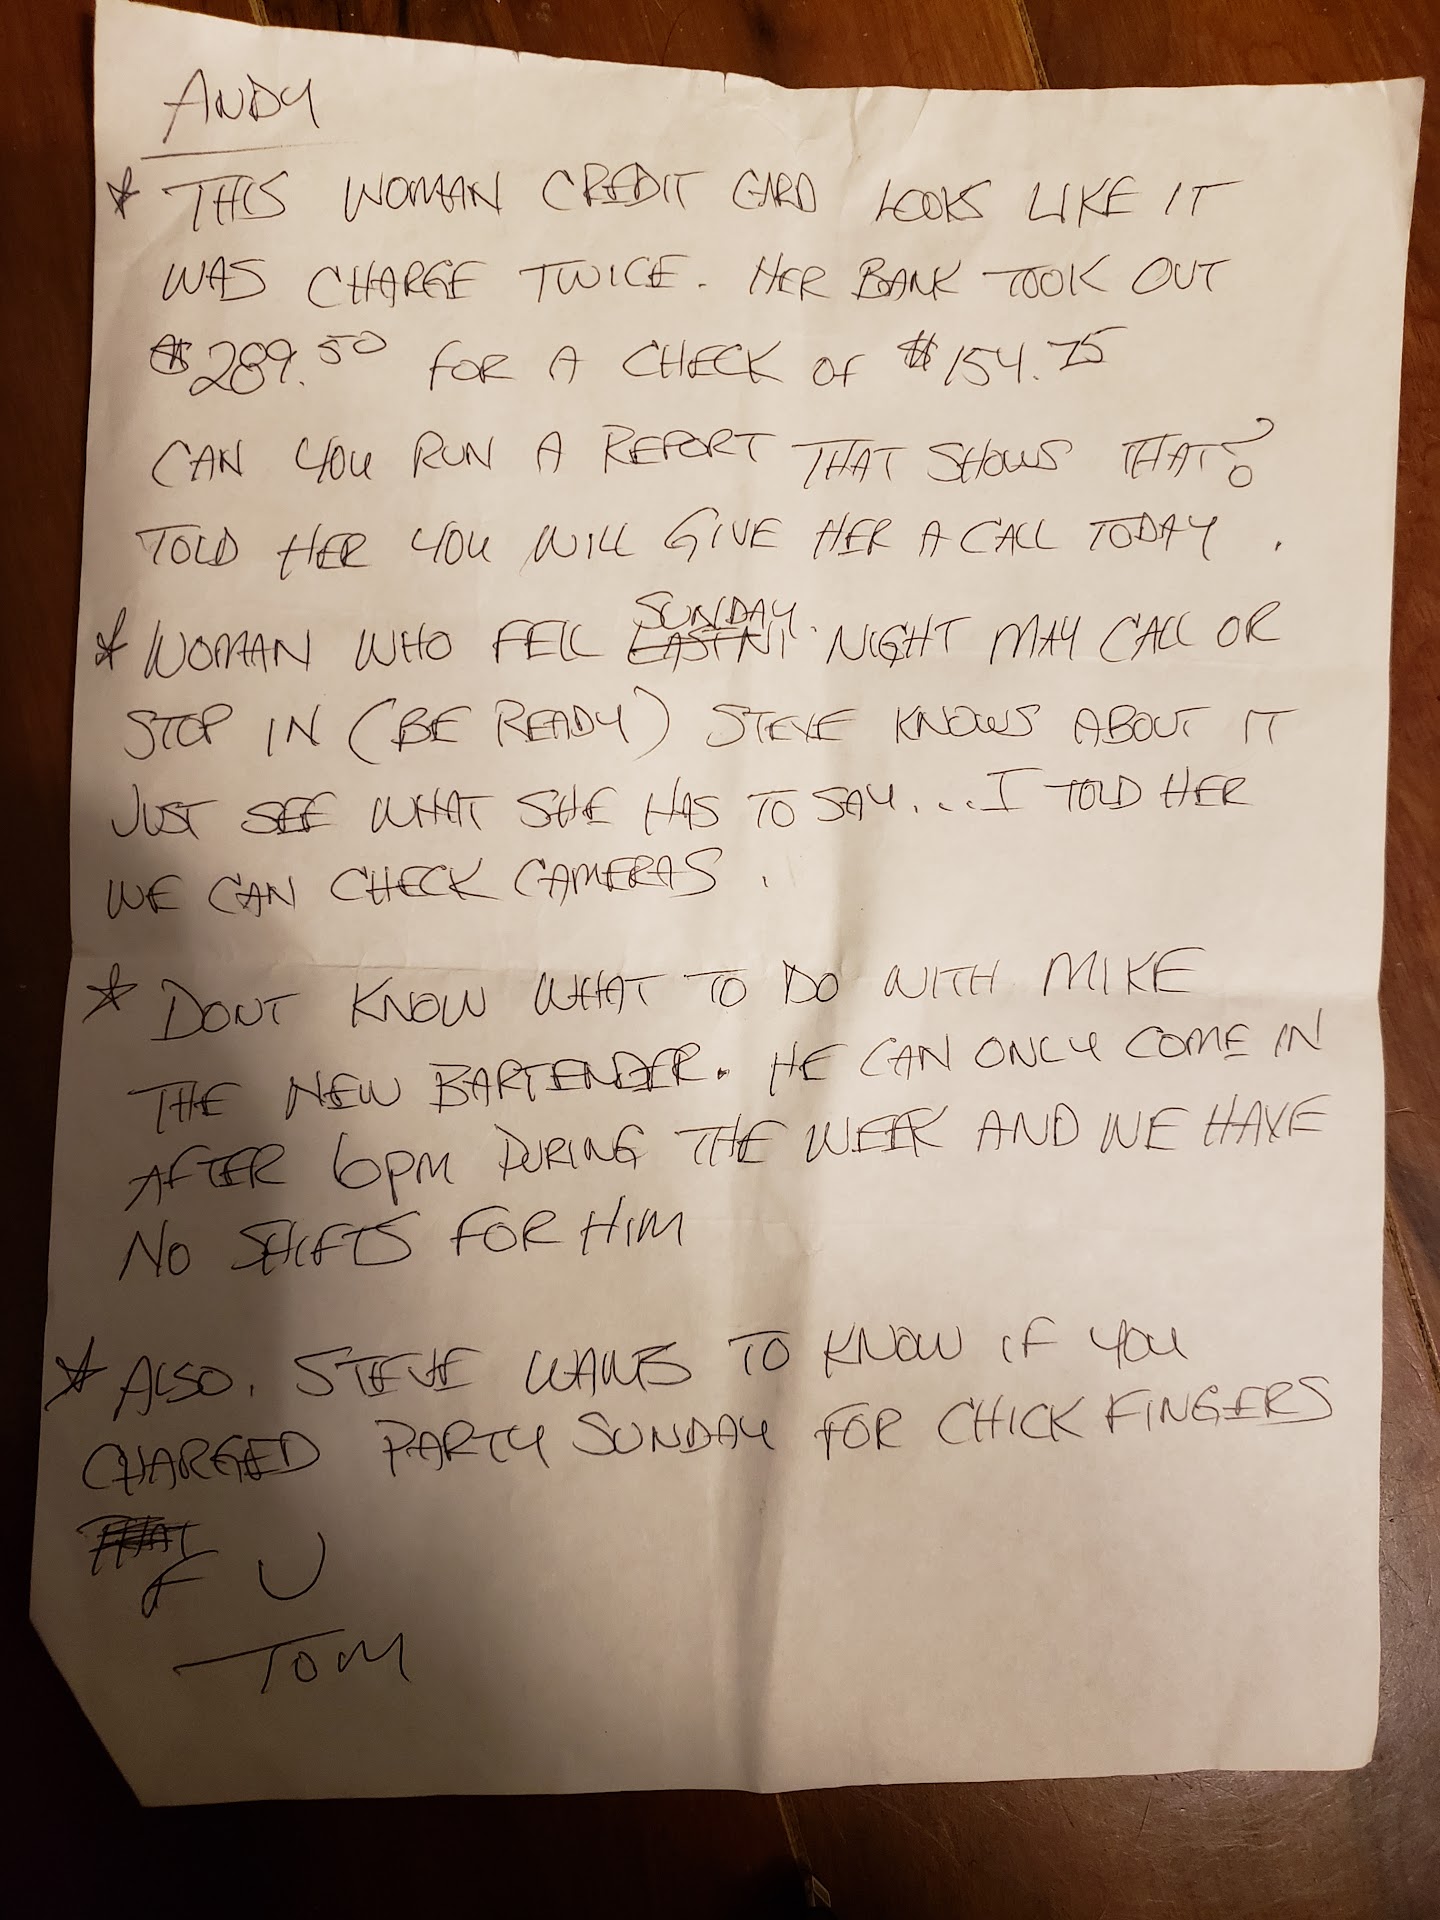 ANDY
* THIS WOMAN CREDIT CARD LOOKS LIKE IT
WAS CHARGE TWICE. HER BANK TOOK OUT
$289.50 FOR A CHECK OF $154.75
CAN YOU RUN A REPORT THAT SHOWS THAT?
TOLD HER YOU WILL GIVE HER A CALL TODAY.
SUNDAY
* WOMAN WHO FELL LAST NI NIGHT MAY CALL OR
STOP IN (BE READY) STEVE KNOWS ABOUT IT
JUST SEE WHAT SHE HAS TO SAY... I TOLD HER
WE CAN CHECK CAMERAS.
* DONT KNOW WHAT TO DO WITH MIKE
THE NEW BARTENDER. HE CAN ONLY COME IN
AFTER 6PM DURING THE WEEK AND WE HAVE
NO SHIFTS FOR HIM
* ALSO, STEVE WANTS TO KNOW IF YOU
CHARGED PARTY SUNDAY FOR CHICK FINGERS
F U
TOM